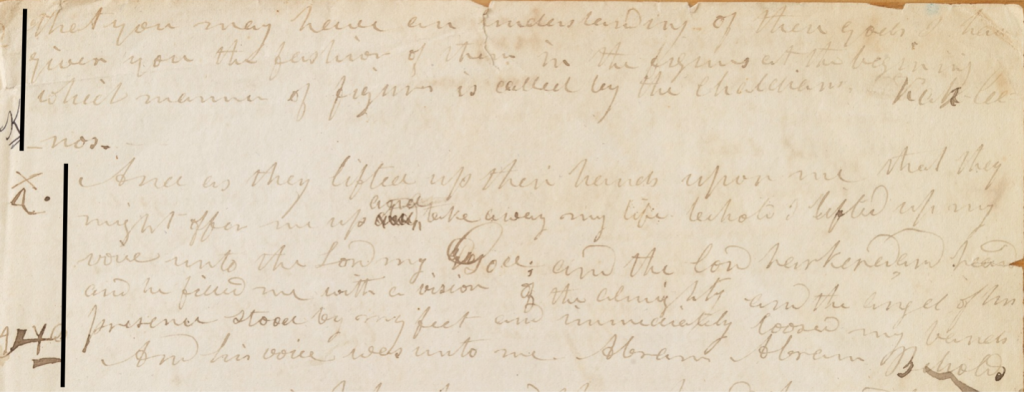 that you may have an understanding of these gods I have
given you the fashion of them in the figures at the begining
which manner of figures is called by the Chaldians. Kah-lee
-nos.
And as they lifted up their hands upon me that they
might offer me up and take away my life behold I lifted up my
voice unto the Lord my God; and the Lord harkened and heard
and he filled me with a vision of the almighty and the angel of his
presence stood by my feet and immediately loosed my bands
And his voice was unto me. Abram Abram Behold